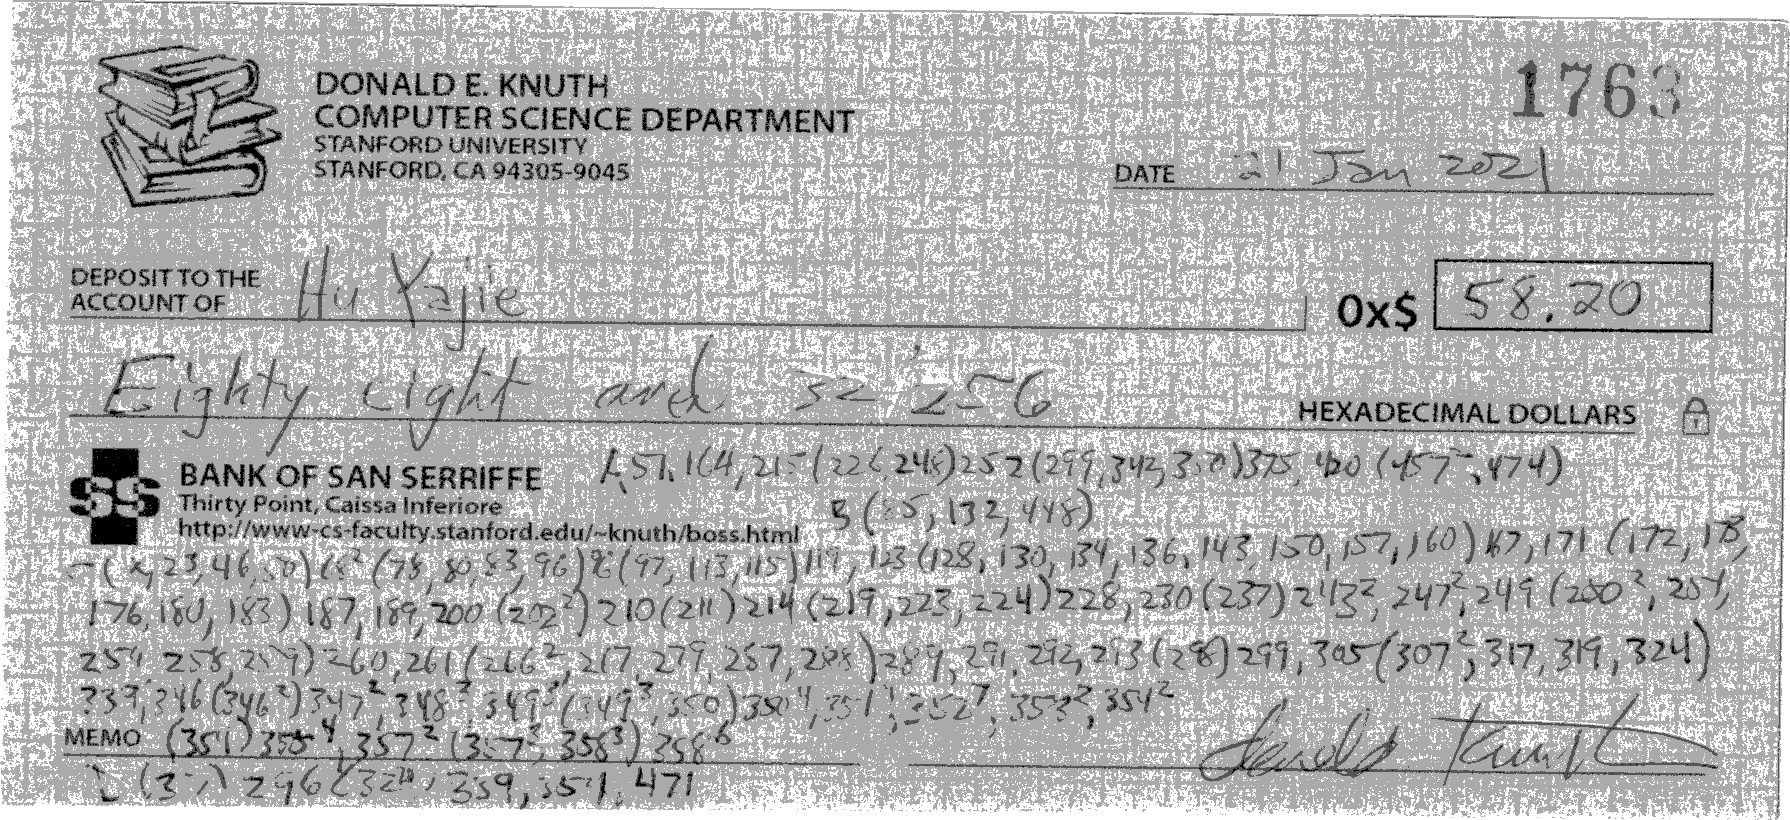 DONALD E. KNUTH
COMPUTER SCIENCE DEPARTMENT
STANFORD UNIVERSITY
STANFORD, CA 94305-9045
1763
DATE 21 Jan 2021
DEPOSIT TO THE
ACCOUNT OF Hu Yajie
0x$ 58.20
Eighty eight and 32/256
HEXADECIMAL DOLLARS
SS
BANK OF SAN SERRIFFE
Thirty Point, Caissa Inferiore
http://www-cs-faculty.stanford.edu/~knuth/boss.html
57, 164, 215 (226, 248) 252 (299, 342, 350) 375, 420 (457, 474)
132, 448)
23, 46, (78, 80, 83, 96) (97, 113, 115) 119, 123 (128, 130, 134, 136, 143, 150, 157, 160) 167, 171 (172, 178,
176, 180, 183) 187, 189, 200 (202²) 210 (211) 214 (219, 223, 224) 228, 230 (237) 243², 247², 249 (250²,
260, 261 (266², 289, 291, 292, 293 (298) 299, 305 (307², 317, 319, 324)
339, 346 (346²) 347², 348², 349² (349³, 350) 350⁴, 351⁴, 352⁷, 353², 354²
MEMO (351) 355⁴, 357² (357², 358³) 358⁶
296 359, 471
Donald Knuth